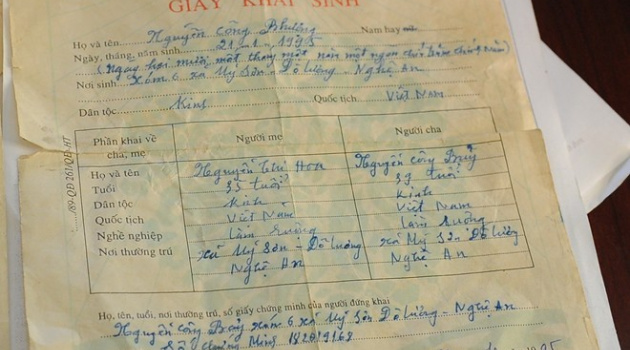 GIẤY KHAI SINH
Họ và tên Nguyễn Công Phượng Nam hay nữ
Ngày, tháng, năm sinh 21-1-1995
(Ngày hai mươi một tháng một năm một ngàn chín trăm chín năm)
Nơi sinh Xóm 6 xã Mỹ Sơn - Đô Lương - Nghệ An
Dân tộc Kinh Quốc tịch Việt Nam
Phần khai về cha, mẹ Người mẹ Người cha
Họ và tên Nguyễn Thị Hoa Nguyễn Công Bảy
Tuổi 33 tuổi tuổi
Dân tộc Kinh Kinh
Quốc tịch Việt Nam Việt Nam
Nghề nghiệp Làm Ruộng Làm Ruộng
Nơi thường trú xã Mỹ Sơn - Đô Lương xã Mỹ Sơn Đô Lương
Nghệ An Nghệ An
Họ, tên, tuổi, nơi thường trú, số giấy chứng minh của người đứng khai
Nguyễn Công Bảy xóm 6 xã Mỹ Sơn Đô Lương - Nghệ An
Số Chứng Minh